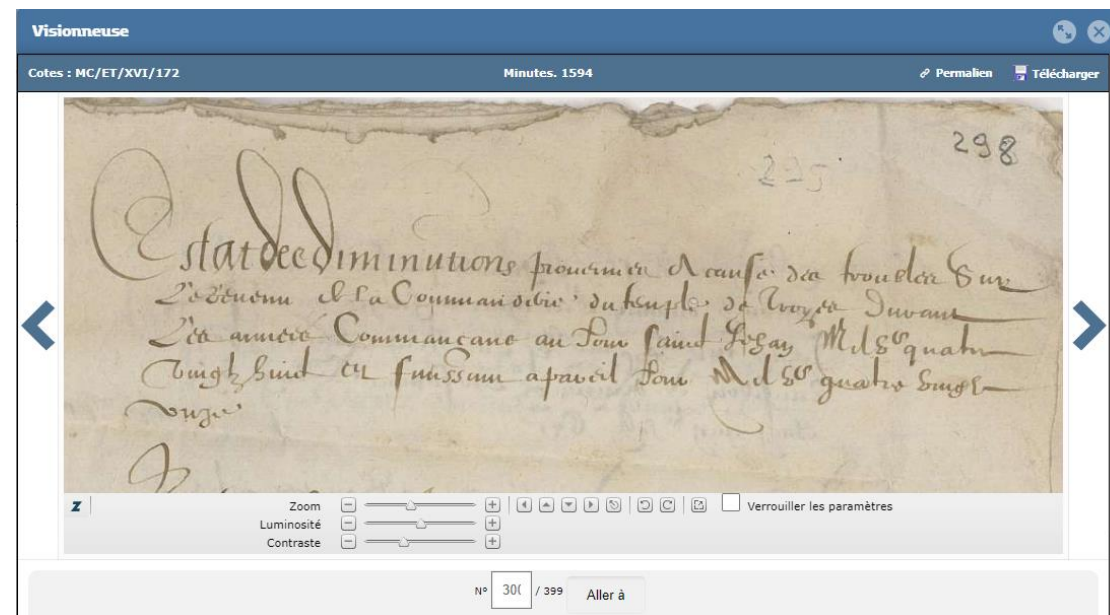 Visionneuse
Cotes : MC/ET/XVI/172 Minutes. 1594 Permalien Télécharger
298
295
Estat des diminutions provenues A cause des troubles Sur
Le Revenu de La Commanderie du temple de Troyes Durant
Les années Commancant au Jour saint Jehan Mil Vcc quatre
Vingtz huict et finissant a pareil Jour Mil Vcc quatre vingt
unze
Zoom Verrouiller les paramètres
Luminosité
Contraste
N° 300 / 399 Aller à